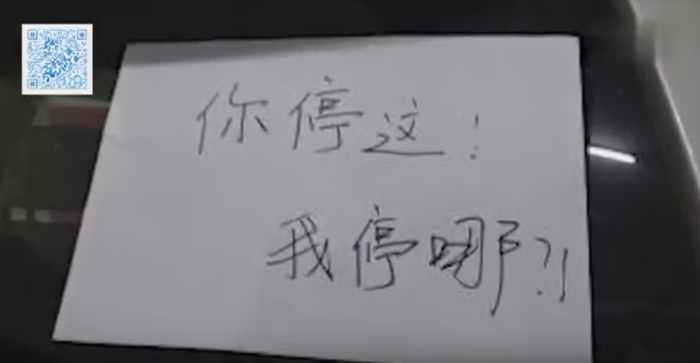 你停这!
我停哪?!